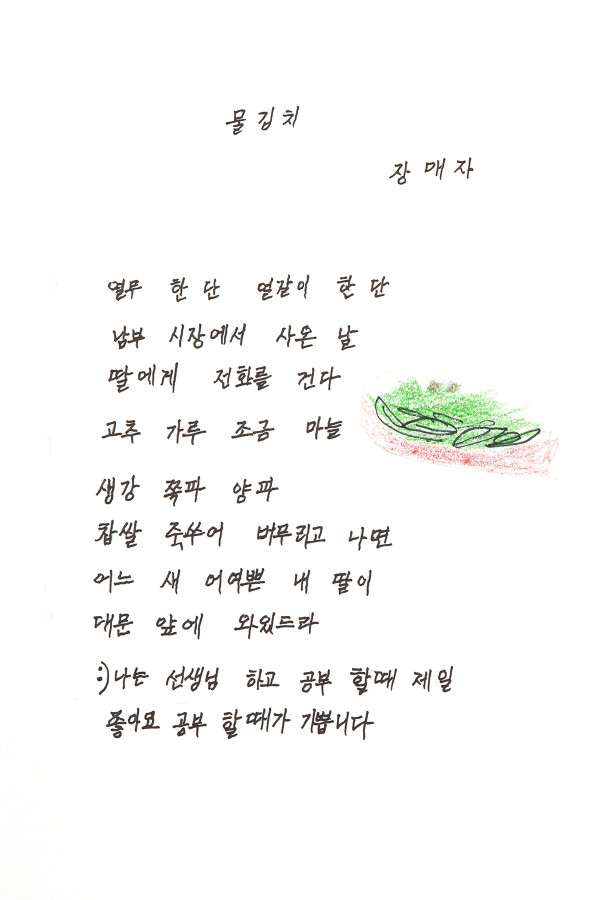 물김치
장매자
열무 한 단 얼갈이 한 단
남부 시장에서 사온 날
딸에게 전화를 건다
고추 가루 조금 마늘
생강 쪽파 양파
찹쌀 죽쑤어 버무리고 나면
어느 새 어여쁜 내 딸이
대문 앞에 와있드라
:)나는 선생님 하고 공부 할때 제일
좋아요 공부 할때가 기쁩니다